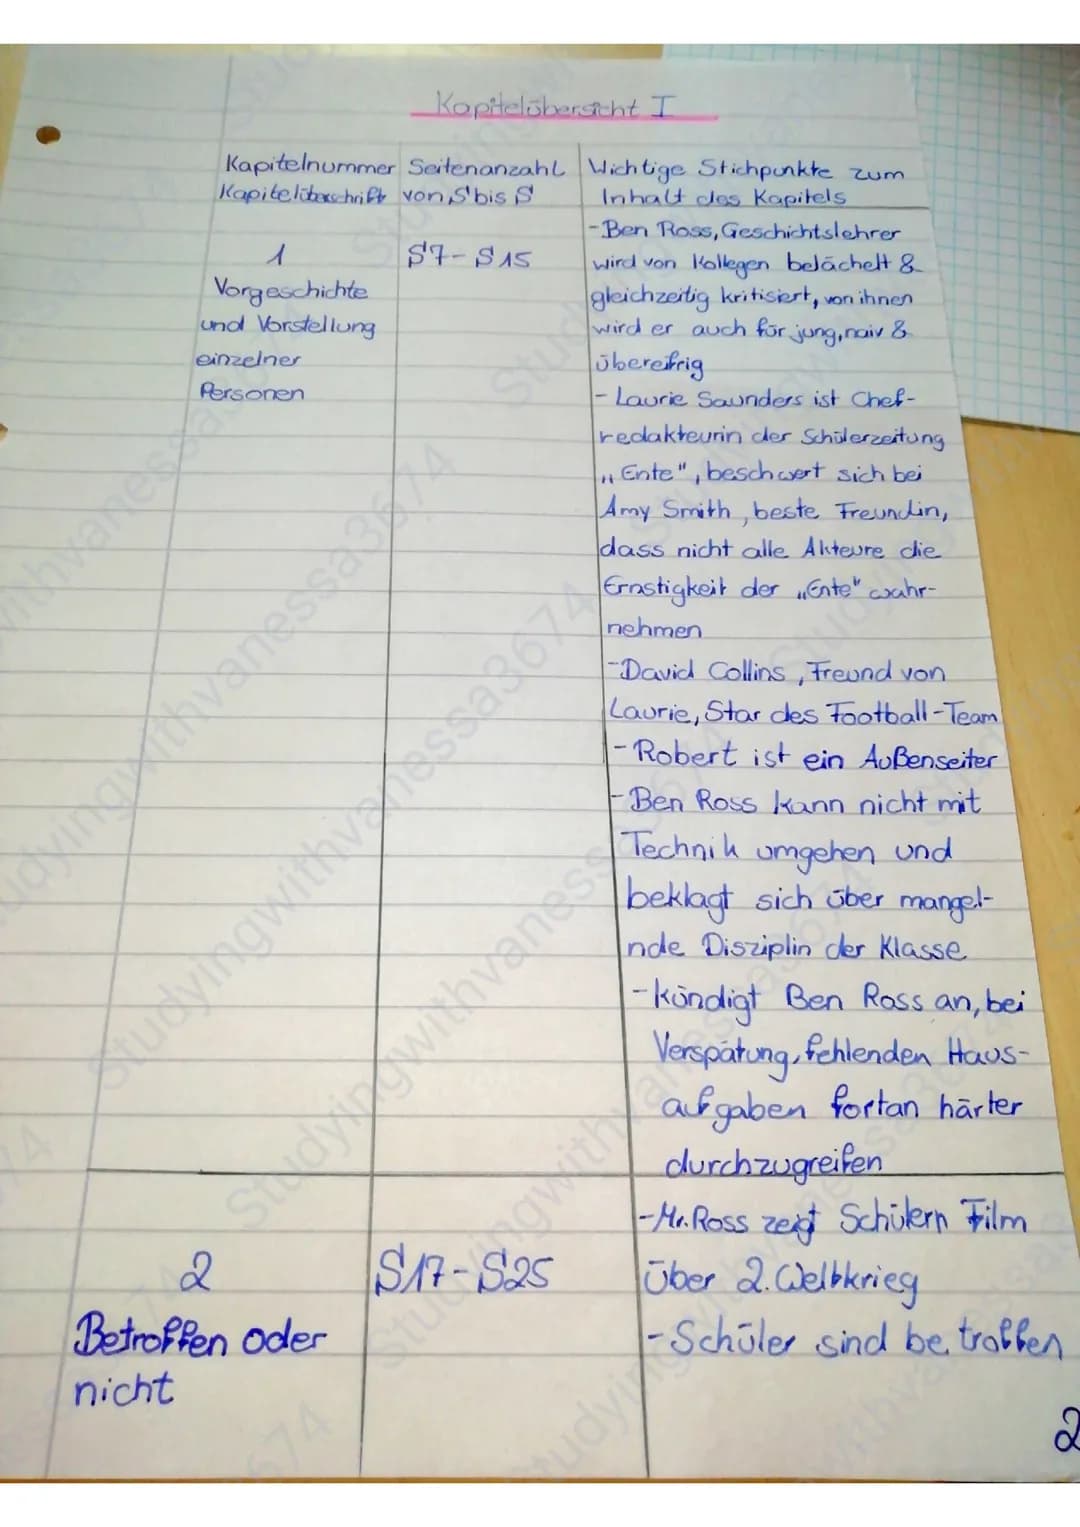 Kapitelübersicht I
Kapitelnummer
Kapitelüberschrift
Seitenanzahl
von S bis S
Wichtige Stichpunkte zum
Inhalt des Kapitels
1
Vorgeschichte
und Vorstellung
einzelner
Personen
S7-S15
-Ben Ross, Geschichtslehrer
wird von Kollegen belächelt &
gleichzeitig kritisiert, von ihnen
wird er auch für jung, naiv &
übereifrig
- Laurie Saunders ist Chef-
redakteurin der Schülerzeitung
„Ente", beschwert sich bei
Amy Smith, beste Freundin,
dass nicht alle Akteure die
Ernstigkeit der „Ente" wahr-
nehmen
-David Collins, Freund von
Laurie, Star des Football-Team
-Robert ist ein Außenseiter
-Ben Ross kann nicht mit
Technik umgehen und
beklagt sich über mangel-
nde Disziplin der Klasse
-kündigt Ben Ross an, bei
Verspätung, fehlenden Haus-
aufgaben fortan härter
durchzugreifen
2
Betroffen oder
nicht
S17-S25
-Mr. Ross zeigt Schülern Film
über 2. Weltkrieg
-Schüler sind betroffen
2
Studyingwithvanessa3674